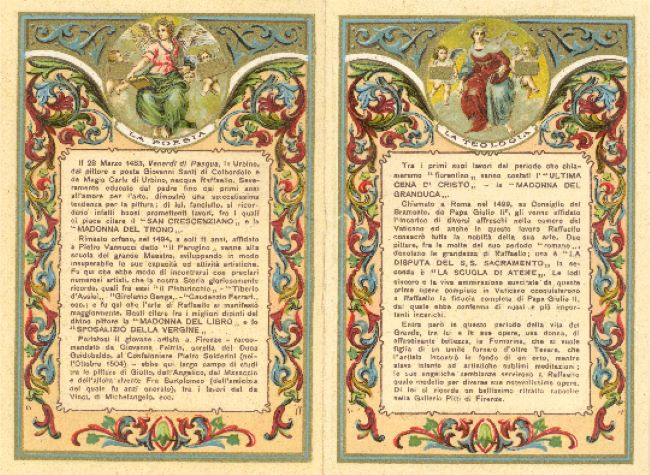 LA POESIA
Il 28 Marzo 1483, Venerdì di Pasqua, in Urbino,
dal pittore e poeta Giovanni Santi di Colbordolo e
da Magia Carla di Urbino, nacque Raffaello. Seve-
ramente educato dal padre fino dai primi anni
all'amore per l'arte, dimostrò una spiccatissima
tendenza per la pittura; di lui, fanciullo, si ricor-
dono infatti bossi promettenti lavori, fra i quali
ci piace citare il "SAN CRESCENZIANO„ e la
"MADONNA DEL TRONO„.
Rimasto orfano, nel 1494, a soli 11 anni, affidato
a Pietro Vannucci detto "il Perugino„ venne alla
scuola del grande Maestro, sviluppando in modo
insuperabile le sue capacità ed attività artistiche.
Fu qui che ebbe modo di incontrarsi con preclari
numerosi artisti, che la nostra Storia gloriosamente
ricorda, quali fra essi "il Pinturicchio„ - "Tiberio
d'Assisi„ - "Girolamo Genga„ - "Gaudenzio Ferrari„
ecc.; e fu qui che l'arte di Raffaello si manifestò
maggiormente. Basti citare fra i migliori dipinti del
divino pittore la "MADONNA DEL LIBRO„ e lo
"SPOSALIZIO DELLA VERGINE„.
Portatosi il giovane artista a Firenze - racco-
mandato da Giovanna Feltria, sorella del Duca
Guidobaldo, al Gonfaloniere Pietro Solderini (nel-
l'Ottobre 1504) - ebbe qui largo campo di studi
tra le pitture di Giotto, dell'Angelico, del Masaccio
e dell'allora vivente Fra Bartolomeo (dell'amicizia
del quale fu anzi onorato), tra i lavori del da
Vinci, di Michelangelo, ecc.
LA TEOLOGIA
Tra i primi suoi lavori del periodo che chia-
meremo "fiorentino„ vanno contati l'"ULTIMA
CENA DI CRISTO„ - la "MADONNA DEL
GRANDUCA„.
Chiamato a Roma nel 1499, su Consiglio del
Bramante, da Papa Giulio II°, gli venne affidato
l'incarico di diversi affreschi nelle camere del
Vaticano ed anche in questo lavoro Raffaello
consacrò tutta la nobiltà della sua arte. Due
pitture, fra le molte del suo periodo "romano„,
denotano la grandezza di Raffaello; una è "LA
DISPUTA DEL S. S. SACRAMENTO„ la se-
conda è "LA SCUOLA DI ATENE„. Le lodi
sincere e la viva ammirazione suscitate da queste
prime opere compiute in Vaticano conquistarono
a Raffaello la fiducia completa di Papa Giulio II,
dal quale ebbe conferma di nuovi e più impor-
tanti incarichi.
Entra però in questo periodo della vita del
Grande, tra lui e le sue opere, una donna, di
affascinante bellezza, la Fornarina, che si vuole
figlia di un umile fornaio d'oltre Tevere, che
l'artista incontrò in fondo di un orto, mentre
stava intento ad artistiche sublimi meditazioni;
le sue angeliche sembianze servirono a Raffaello
quale modello per diverse sue notevolissime opere.
Di lei si ricorda un bellissimo ritratto racchiuso
nella Galleria Pitti di Firenze.